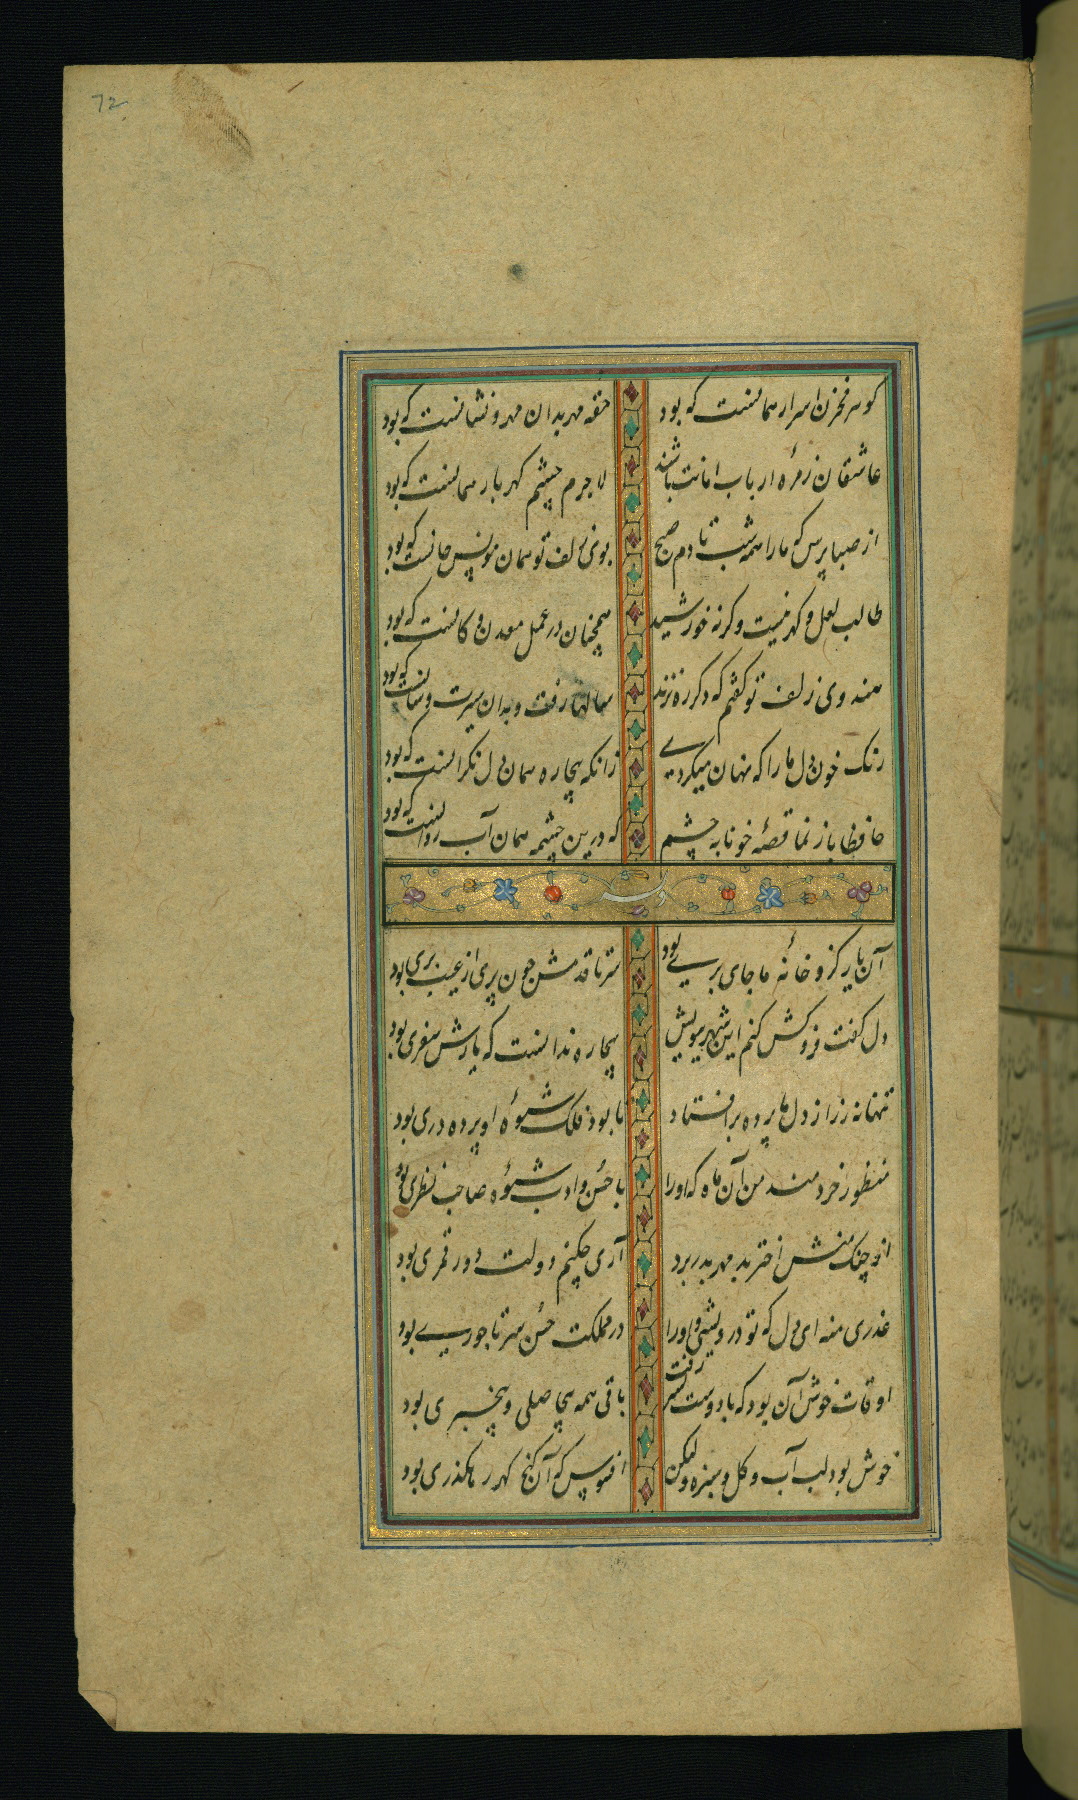 72
کوهر مخزن اسرار همانست که بود حقه مهر بدان مهر و نشانست که بود
عاشقان زمرهٔ ارباب امانت باشند لاجرم چشم کهربار همانست که بود
از صبا پرس که ما را همه شب تا دم صبح بوی زلف تو همان مونس جانست که بود
طالب لعل و کهر نیست وکرنه خورشید همچنان در عمل معدن و کانست که بود
هندوی زلف تو کفتم که دکر ره نزند سالها رفت و بدان سیرت و سانست که بود
رنک خون دل ما را که نهان میکردی زانکه بیچاره همان دل نکرانست که بود
حافظا باز نما قصهٔ خونابه چشم که درین چشمه همان آب روانست که بود
آن یار کزو خانهٔ ما جای پری بود سر تا قدمش چون پری از عیب بری بود
دل کفت فروکش کنم این شهر ببویش بیچاره ندانست که یارش سفری بود
تنها نه ز راز دل ما پرده برافتاد تا بود فلک شیوهٔ او پرده دری بود
منظور خردمند من آن ماه که او را با حسن و ادب شیوهٔ صاحب نظری بود
از چنک منش اختر بد مهر بدر برد آری چکنم دولت دور قمری بود
عذری بنه ای دل که تو درویشی و او را در مملکت حسن سر تاجوری بود
اوقات خوش آن بود که با دوست بسر رفت باقی همه بیحاصلی و بیخبری بود
خوش بود لب آب و کل و سبزه ولیکن افسوس که آن کنج کهر رهکذری بود